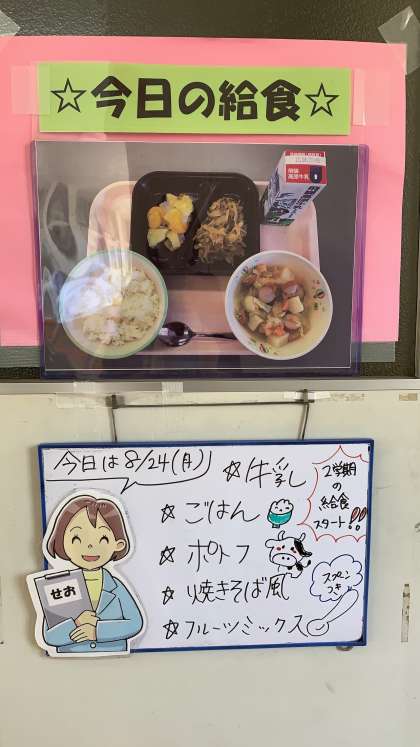 ☆今日の給食☆
今日は8/24(月)
☆牛乳
☆ごはん
☆ポトフ
☆焼きそば風
☆フルーツミックス
2学期
の
給食
スタート!!
スプーン
つき
せお